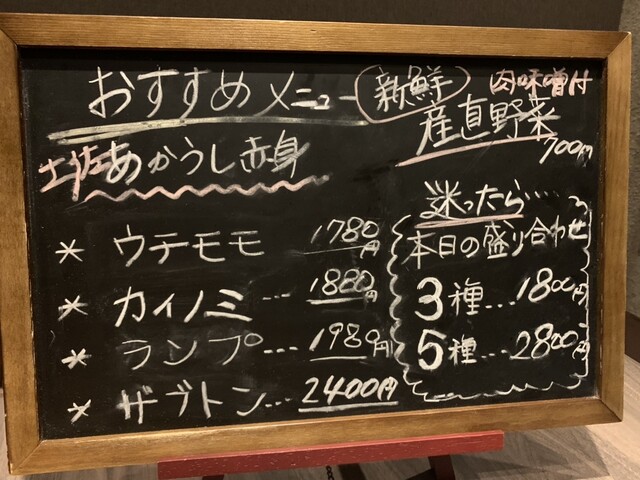 おすすめメニュー
土佐あかうし赤身
* ウチモモ 1780円
* カイノミ... 1880円
* ランプ... 1980円
* ザブトン... 2400円
新鮮
肉味噌付
産直野菜
700円
迷ったら....
本日の盛り合わせ
3種...1800円
5種...2800円